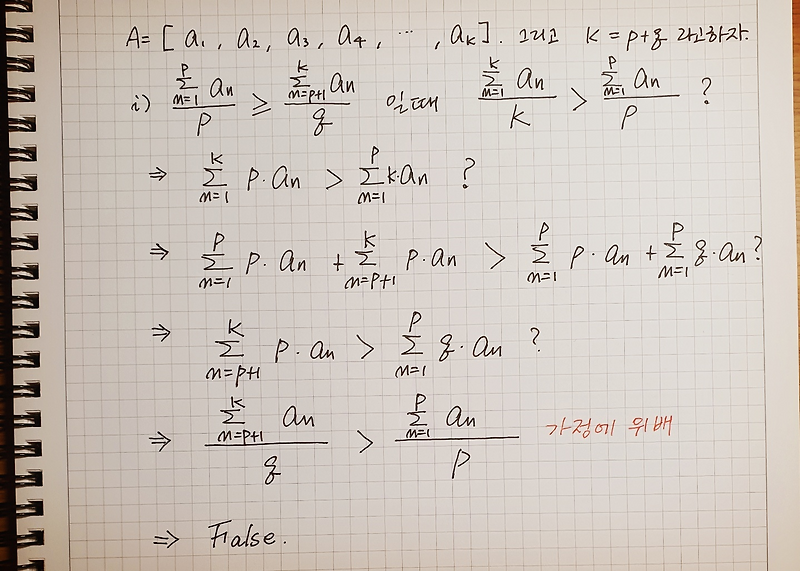 A = [ a₁ , a₂ , a₃ , a₄ , ⋯ , aₖ ] . 그리고 k = p+q 라고하자.
i) \frac{\sum_{n=1}^{p} a_n}{p} ≥ \frac{\sum_{n=p+1}^{k} a_n}{q} 일때 \frac{\sum_{n=1}^{k} a_n}{k} > \frac{\sum_{n=1}^{p} a_n}{p} ?
⇒ \sum_{n=1}^{k} p·a_n > \sum_{n=1}^{p} k·a_n ?
⇒ \sum_{n=1}^{p} p·a_n + \sum_{n=p+1}^{k} p·a_n > \sum_{n=1}^{p} p·a_n + \sum_{n=1}^{p} q·a_n ?
⇒ \sum_{n=p+1}^{k} p·a_n > \sum_{n=1}^{p} q·a_n ?
⇒ \frac{\sum_{n=p+1}^{k} a_n}{q} > \frac{\sum_{n=1}^{p} a_n}{p} 가정에 위배
⇒ False.